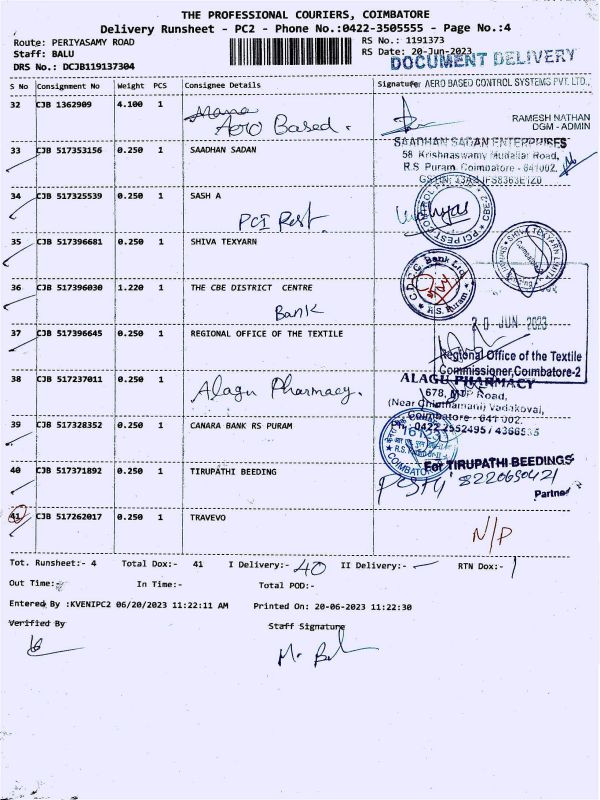 THE PROFESSIONAL COURIERS, COIMBATORE
Delivery Runsheet - PC2 - Phone No.:0422-3505555 - Page No.:4
Route: PERIYASAMY ROAD
RS No.: 1191373
Staff: BALU
RS Date: 20-Jun-2023
DOCUMENT DELIVERY
DRS No.: DCJB119137304
S No Consignment No Weight PCS Consignee Details Signature
AERO BASED CONTROL SYSTEMS PVT. LTD.,
32 CJB 1362909 4.100 1
Aero Based.
RAMESH NATHAN
DGM - ADMIN
SAADHAN SADAN ENTERPRISES
33 CJB 517353156 0.250 1 SAADHAN SADAN
58 Krishnaswamy Mudaliar Road,
R.S Puram, Coimbatore - 641002.
34 CJB 517325539 0.250 1 SASH A
PCI Pest.
35 CJB 517396681 0.250 1 SHIVA TEXYARN
36 CJB 517396030 1.220 1 THE CBE DISTRICT CENTRE
Bank
C.D.C.C. Bank Ltd
R.S. Puram
20 JUN 2023
37 CJB 517396645 0.250 1 REGIONAL OFFICE OF THE TEXTILE
Regional Office of the Textile
Commissioner, Coimbatore-2
38 CJB 517237011 0.250 1
Alagu Pharmacy.
ALAGU PHARMACY
678, MTP Road,
(Near Chinthamani) Vadakovai,
Coimbatore - 641 002.
Ph: 0422 2552495 / 4366535
39 CJB 517328352 0.250 1 CANARA BANK RS PURAM
40 CJB 517371892 0.250 1 TIRUPATHI BEEDING
For TIRUPATHI BEEDINGS
8220650421
Partner
41 CJB 517262017 0.250 1 TRAVEVO
N/P
Tot. Runsheet:- 4 Total Dox:- 41 I Delivery:- 40 II Delivery:- - RTN Dox:- 1
Out Time:- In Time:- Total POD:-
Entered By :KVENIPC2 06/20/2023 11:22:11 AM Printed On: 20-06-2023 11:22:30
Verified By Staff Signature